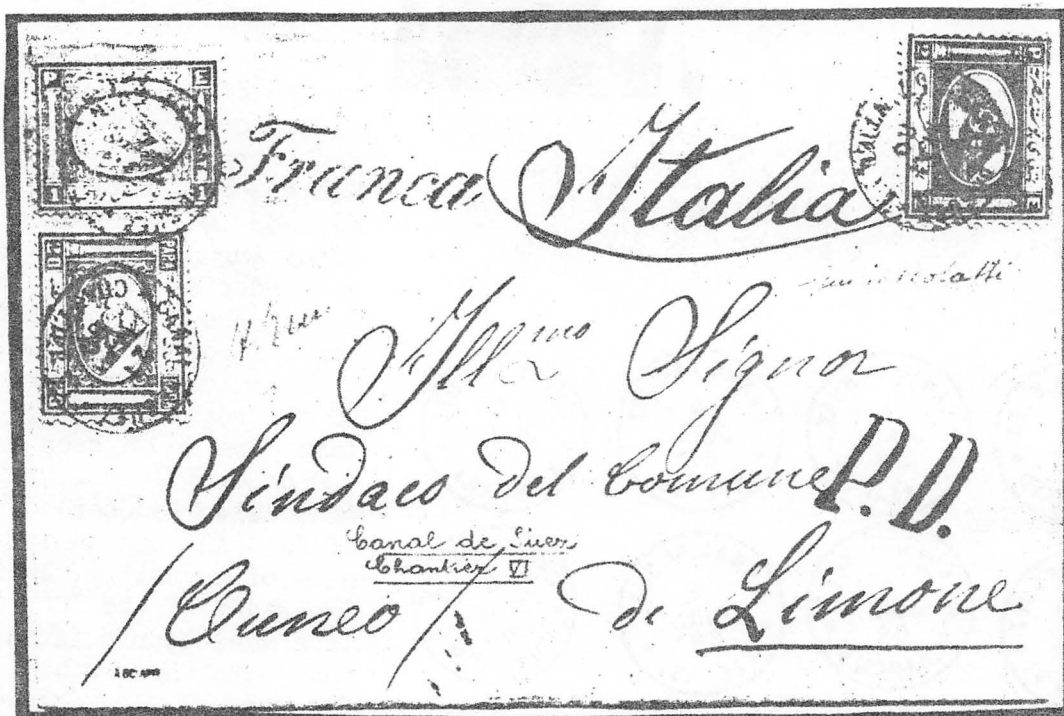 Franca Italia
Ill.mo Signor
Sindaco del Comune
P.D.
Canal de Suez
Chantier VI
/Cuneo/ di Limone